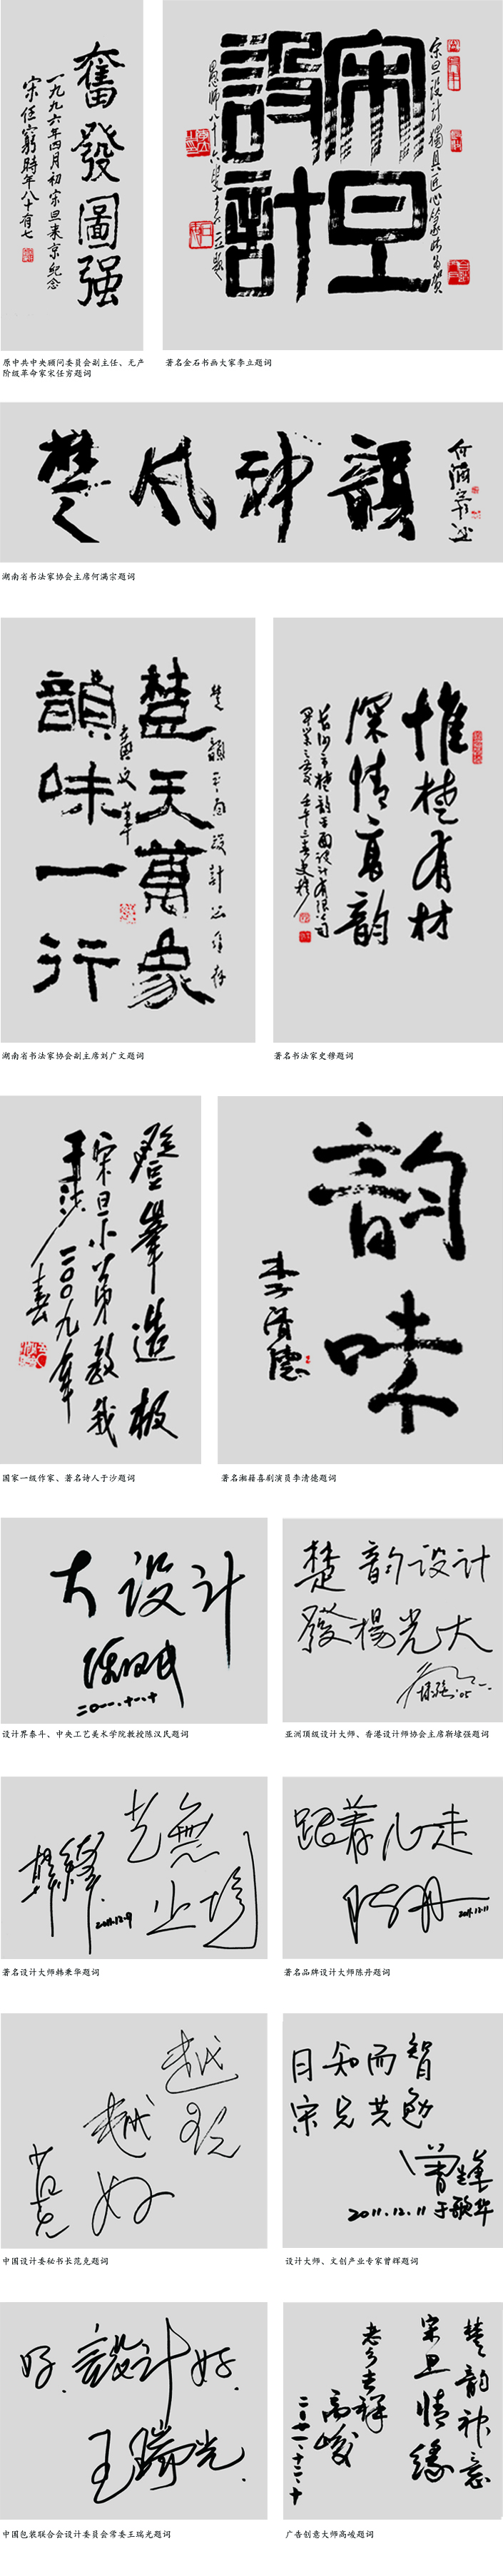 奮發圖强
一九九六年四月初宋旦来京紀念
宋任窮時年八十有七
原中共中央顾问委员会副主任、无产
阶级革命家宋任穷题词
宋旦
設計
著名金石书画大家李立题词
楚风神韻
何满宗
湖南省书法家协会主席何满宗题词
楚韻平面設計公司存
楚天萬象
韻味一行
湖南省书法家协会副主席刘广文题词
惟楚有材
深情高韵
著名书法家史穆题词
登峯造极
宋旦小弟教我
二〇〇九年春
于沙
国家一级作家、著名诗人于沙题词
韵味
李清德
著名湘籍喜剧演员李清德题词
大设计
陈汉民
设计界泰斗、中央工艺美术学院教授陈汉民题词
楚韵设计
發揚光大
亚洲顶级设计大师、香港设计师协会主席靳埭强题词
艺無止境
2011.12.9
著名设计大师韩秉华题词
跟着心走
陈丹
2011.12.11
著名品牌设计大师陈丹题词
越玩
越好
中国设计委秘书长范克题词
日知而智
宋兄共勉
曾辉
2011.12.11于歌华
设计大师、文创产业专家曾辉题词
好.設计好.
王瑞光.
中国包装联合会设计委员会常委王瑞光题词
楚韵神意
宋旦情缘
高峻
广告创意大师高峻题词